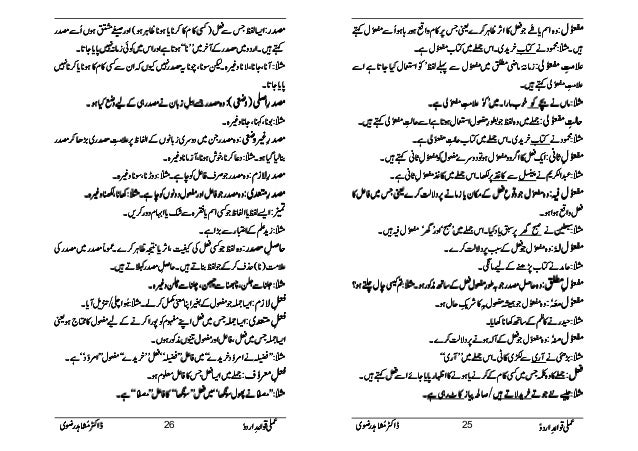 مفعول: وہ اسم یا شے جو فعل کا اثر ظاہر کرے یعنی جس پر کام واقع ہو رہا ہو اُسے مفعول کہتے
ہیں۔ مثلاً: محمود نے کتاب خریدی۔ اس جملے میں کتاب مفعول ہے۔
علامتِ مفعولی: زمانۂ ماضی مطلق میں مفعول سے پہلے لفظ ’کو‘ استعمال کیا جاتا ہے اسے
علامتِ مفعولی کہتے ہیں۔
مثلاً: ماں نے بچے کو خوب مارا۔ میں ’کو‘ علامتِ مفعولی ہے۔
حالتِ مفعولی: جملے میں وہ لفظ جو بطورِ مفعول استعمال ہوتا ہے اسے حالتِ مفعولی کہتے ہیں۔
مثلاً: محمود نے کتاب خریدی۔ اس جملے میں کتاب مفعولی ہے۔
مفعولِ ثانی: ایک فعل کا اگر دو مفعول ہو تو دوسرے مفعول کو مفعولِ ثانی کہتے ہیں۔
مثلاً: عبدالکریم نے پنسل سے کاغذ پر لکھا۔ اس جملے میں کاغذ مفعولِ ثانی ہے۔
مفعول فیہ: وہ مفعول جو وقوعِ فعل کے مکان یا زمانے پر دلالت کرے یعنی جس میں فاعل کا
فعل واقع ہوا ہو۔
مثلاً: سبطین نے صبح گھر پر سبق یاد کیا۔ اس جملے میں ’صبح‘ اور ’گھر‘ مفعول فیہ ہیں۔
مفعول لہٗ: وہ مفعول جو فعل کے سبب پر دلالت کرے۔
مثلاً: حامد نے کتاب پڑھنے کے لیے مانگی۔
مفعولِ مطلق: وہ حاصل مصدر جو بہ طورِ مفعول فعل کے ساتھ مذکور ہو۔ مثلاً: تم کیسی چال چلتے ہو؟
مفعول معہٗ: وہ مفعول جو ہمیشہ مفعول بہ کا شریکِ حال ہو۔
مثلاً: حیدر نے کاظم کے ساتھ کھانا کھایا۔
مفعول منہٗ: وہ مفعول جو فعل کے آلہ ہونے پر دلالت کرے۔
مثلاً: بڑھئی نے آری سے لکڑی کاٹی۔ اس جملے میں ’’آری‘‘
فعل: جملے کا وہ ٹکڑا جس میں کسی کام کے کرنے یا ہونے کا اظہار پایا جائے اسے فعل کہتے ہیں۔
مثلاً: جیسے نئے جوتے خریدے لاتے ہیں/صالحہ پیاز کاٹ رہی ہے۔
عملی قواعدِ اردو 25 ڈاکٹر مشاہد رضوی
مصدر: ایسا لفظ جس سے فعل (کسی کام کا کرنا یا ہونا ظاہر ہو) اور صیغے مشتق ہوں اُسے مصدر
کہتے ہیں۔ اردو میں مصدر کے آخر میں ’’نا‘‘ ہوتا ہے اور اس میں کوئی زمانہ نہیں پایا جاتا۔
مثلاً: آنا، جانا، لانا وغیرہ۔ لیکن سونا، چونا یہ مصدر نہیں کیوں کہ ان سے کسی کام کا ہونا یا کرنا نہیں
پایا جاتا۔
مصدرِ اصلی (وضعی): وہ مصدر جسے اہلِ زبان نے مصدر ہی کے لیے وضع کیا ہو۔
مثلاً: ہونا، کہنا، جانا وغیرہ۔
مصدرِ غیر وضعی: وہ مصدر جن میں دوسری زبانوں کے الفاظ پر علامتِ مصدری بڑھا کر مصدر
بنا لیا گیا ہو۔ مثلاً: دعا کرنا، خوش ہونا، آزمانا وغیرہ۔
مصدرِ لازم: وہ مصدر جو صرف فاعل کو چاہے۔ مثلاً: دوڑنا، سونا وغیرہ۔
مصدرِ متعدی: وہ مصدر جو فاعل اور مفعول دونوں کو چاہے۔ مثلاً: کھانا، لکھنا وغیرہ۔
تمیز: ایسے لفظ یا الفاظ جو کسی اسم یا فقرہ سے شک یا ابہام دور کریں۔
مثلاً: زید علم کے اعتبار سے بڑا ہے۔
حاصلِ مصدر: وہ لفظ جو کسی فعل کی کیفیت، اثر یا نتیجہ ظاہر کرے۔ عموماً مصدر میں مصدر کی
علامت (نا) حذف کر کے جو لفظ بناتے ہیں۔ حاصلِ مصدر کہلاتے ہیں۔
مثلاً: جلنا سے جلن، چبھنا سے چبھن، چلنا سے چلن وغیرہ۔
فعلِ لازم: ایسا جملہ جو مفعول کے بغیر اپنا معنی مکمل کر لے۔ مثلاً: محمود اچھلا/تنزیل آیا۔
فعلِ متعدی: ایسا جملہ جس میں فعل اپنے مفہوم کو پورا کرنے کے لیے مفعول کا محتاج ہو یعنی
ایسا جملہ جس میں فعل، فاعل اور مفعول تینوں مذکور ہوں۔
مثلاً: ’’فضیلہ نے امرود خریدے‘‘ میں فاعل ’’فضیلہ‘‘ فعل ’’خریدے‘‘ مفعول ’’امرود‘‘ ہے۔
فعلِ معروف: جملے میں ایسا فعل جس کا فاعل معلوم ہو۔
مثلاً: ’’صفا نے پھول سونگھا‘‘ میں فعل ’’سونگھا‘‘ کا فاعل ’’صفا‘‘ ہے۔
عملی قواعدِ اردو 26 ڈاکٹر مشاہد رضوی